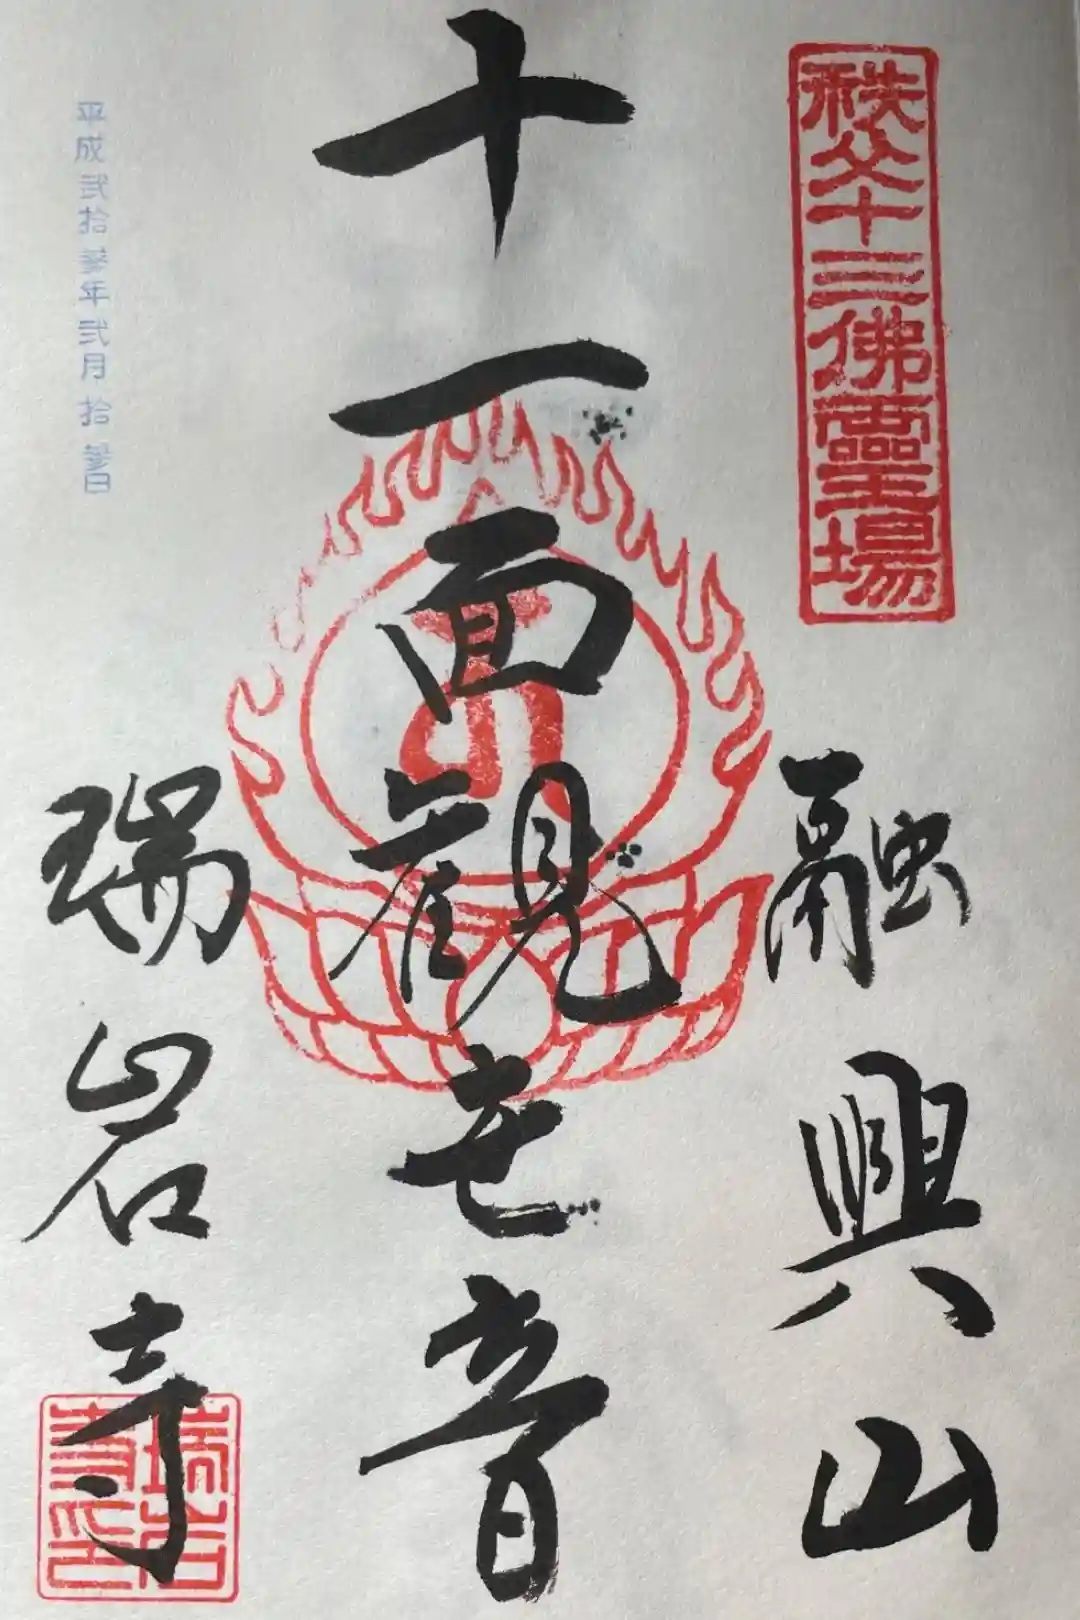 秩父十三佛霊場
融興山
十一面観世音
瑞岩寺
平成弐拾参年弐月拾参日
瑞岩寺印